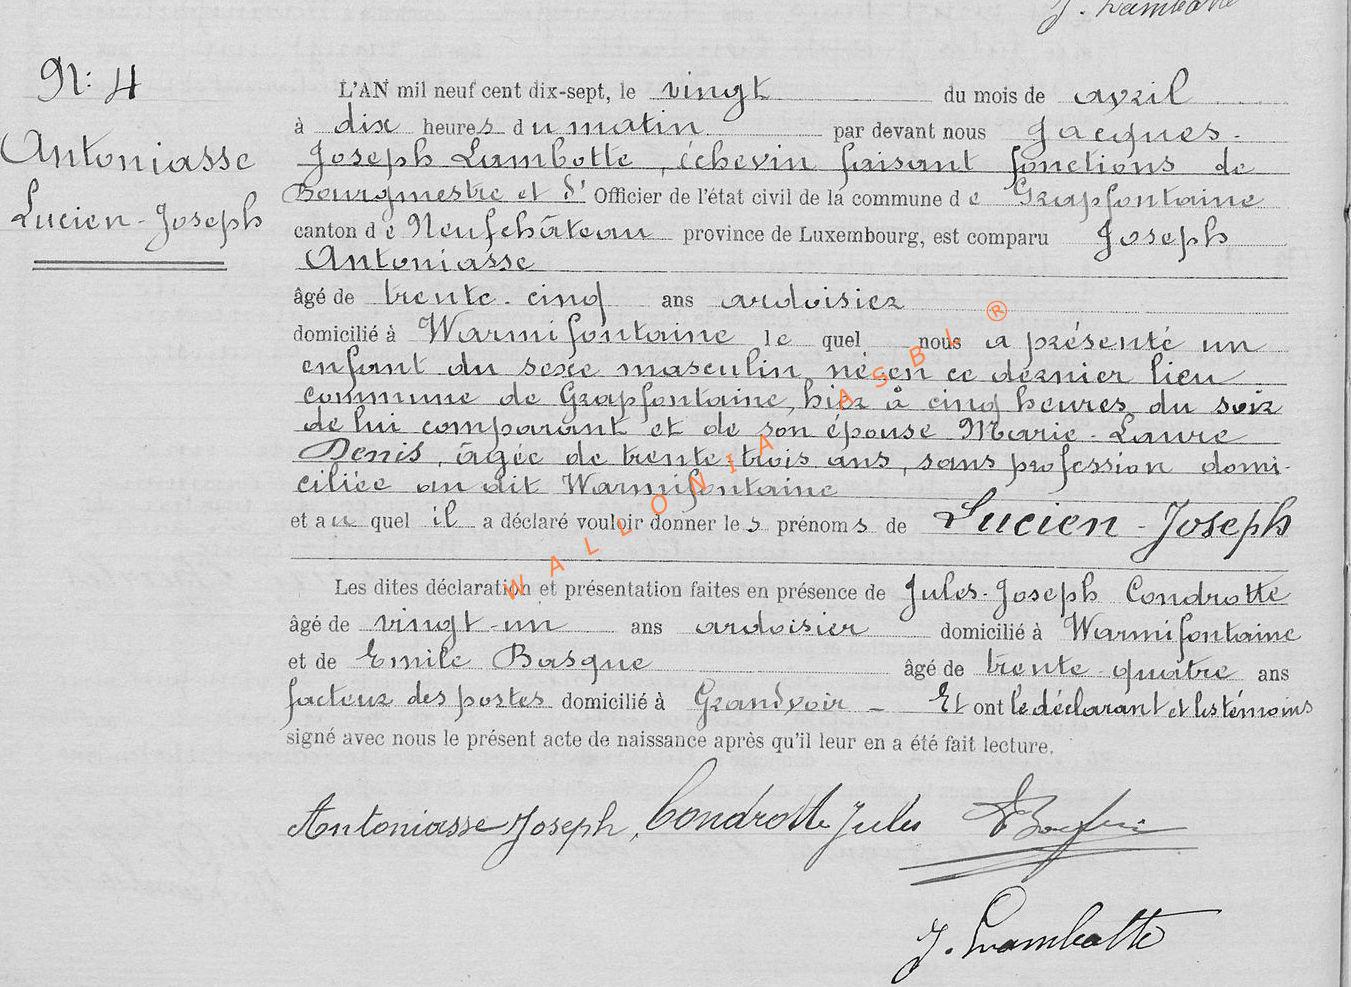 J. Lambotte
N: 4
Antoniasse
Lucien-Joseph
L'AN mil neuf cent dix-sept, le vingt du mois de avril
à dix heures du matin par devant nous Jacques-
Joseph Lambotte, échevin faisant fonctions de
Bourgmestre et d' Officier de l'état civil de la commune de Grapfontaine
canton de Neufchâteau province de Luxembourg, est comparu Joseph
Antoniasse
âgé de trente-cinq ans ardoisier
domicilié à Warmifontaine lequel nous a présenté un
enfant du sexe masculin, né en ce dernier lieu
commune de Grapfontaine, hier à cinq heures du soir
de lui comparant et de son épouse Marie-Laure
Denis, âgée de trente-trois ans, sans profession domi-
ciliée au dit Warmifontaine
et auquel il a déclaré vouloir donner les prénoms de Lucien-Joseph
Les dites déclaration et présentation faites en présence de Jules-Joseph Condrotte
âgé de vingt-un ans ardoisier domicilié à Warmifontaine
et de Emile Basque âgé de trente-quatre ans
facteur des postes domicilié à Grandvoir - Et ont le déclarant et les témoins
signé avec nous le présent acte de naissance après qu'il leur en a été fait lecture.
Antoniasse Joseph, Condrotte Jules
J. Lambotte
WALLONIA ASBL ®